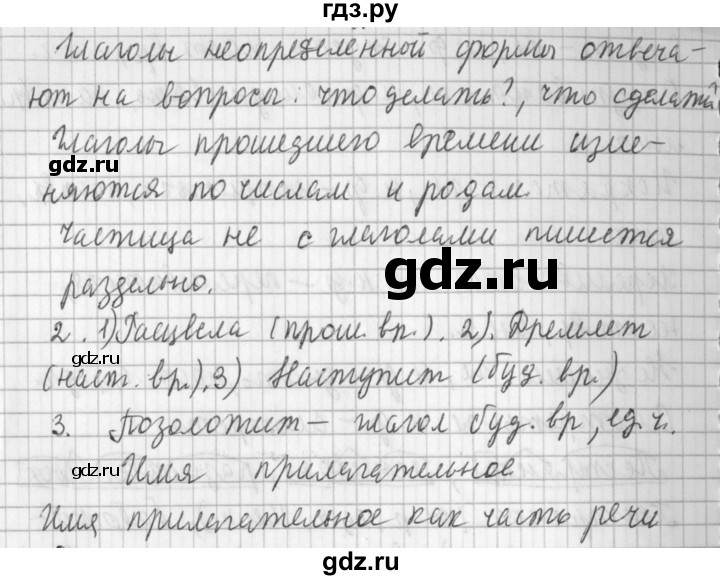 гдз.ру
Глаголы неопределенной формы отвеча-
ют на вопросы: что делать?, что сделать
Глаголы прошедшего времени изме-
gdz.ru gdz.ru
няются по числам и родам.
Частица не с глаголами пишется
gdz.ru
раздельно.
2. 1) Расцвела (прош. вр.). 2). Дремлет
gdz.ru gdz.ru
(наст. вр.). 3) Наступит (буд. вр.)
3. Позолотит – глагол буд. вр, ед. ч.
Имя прилагательное
gdz.ru gdz.ru
Имя прилагательное как часть речи
gdz.ru